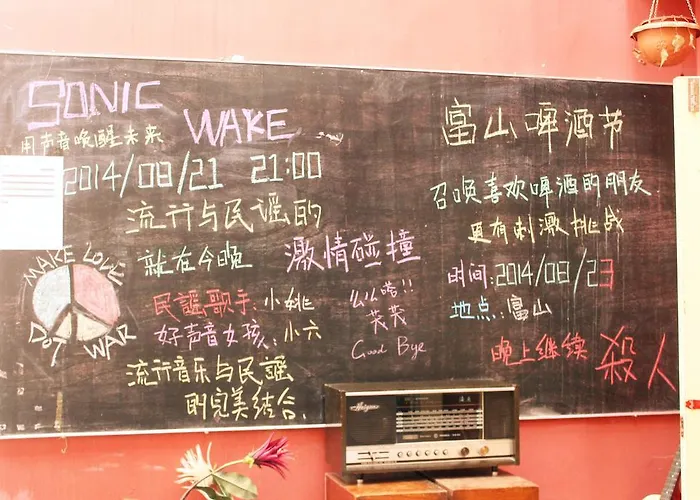 SONIC WAKE
用声音唤醒未来
2014/08/21 21:00
流行与民谣的
就在今晚 激情碰撞
民謡歌手:小姚
好声音女孩:小六
流行音乐与民謡
的完美结合.
MAKE LOVE
Do7 WAR
么么嗒!!
Good Bye
富山啤酒节
召唤喜欢啤酒的朋友
更有刺激挑战
时间:2014/08/23
地点:富山
晚上继续 殺人